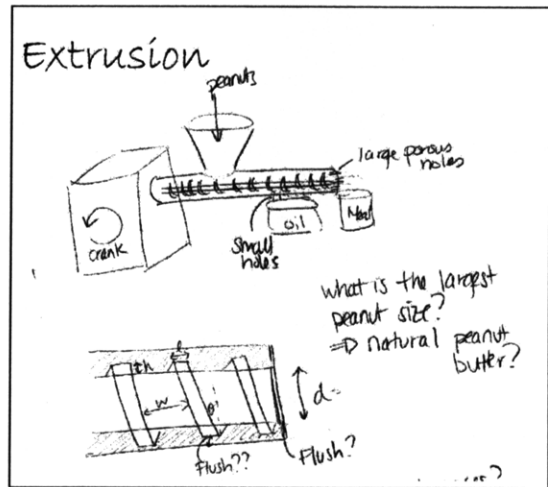 Extrusion
peanuts
large porous
holes
crank
small
holes
oil
Meal
what is the largest
peanut size?
⇒ natural peanut
butter?
t
h
w
θ
d=
Flush??
Flush?